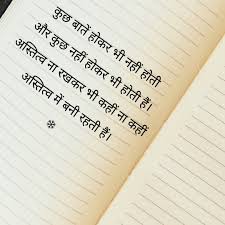 कुछ बातें होकर भी नहीं होती
और कुछ नहीं होकर भी होती हैं।
अस्तित्व ना रखकर भी कहीं ना कहीं
अस्तित्व में बनी रहती हैं।